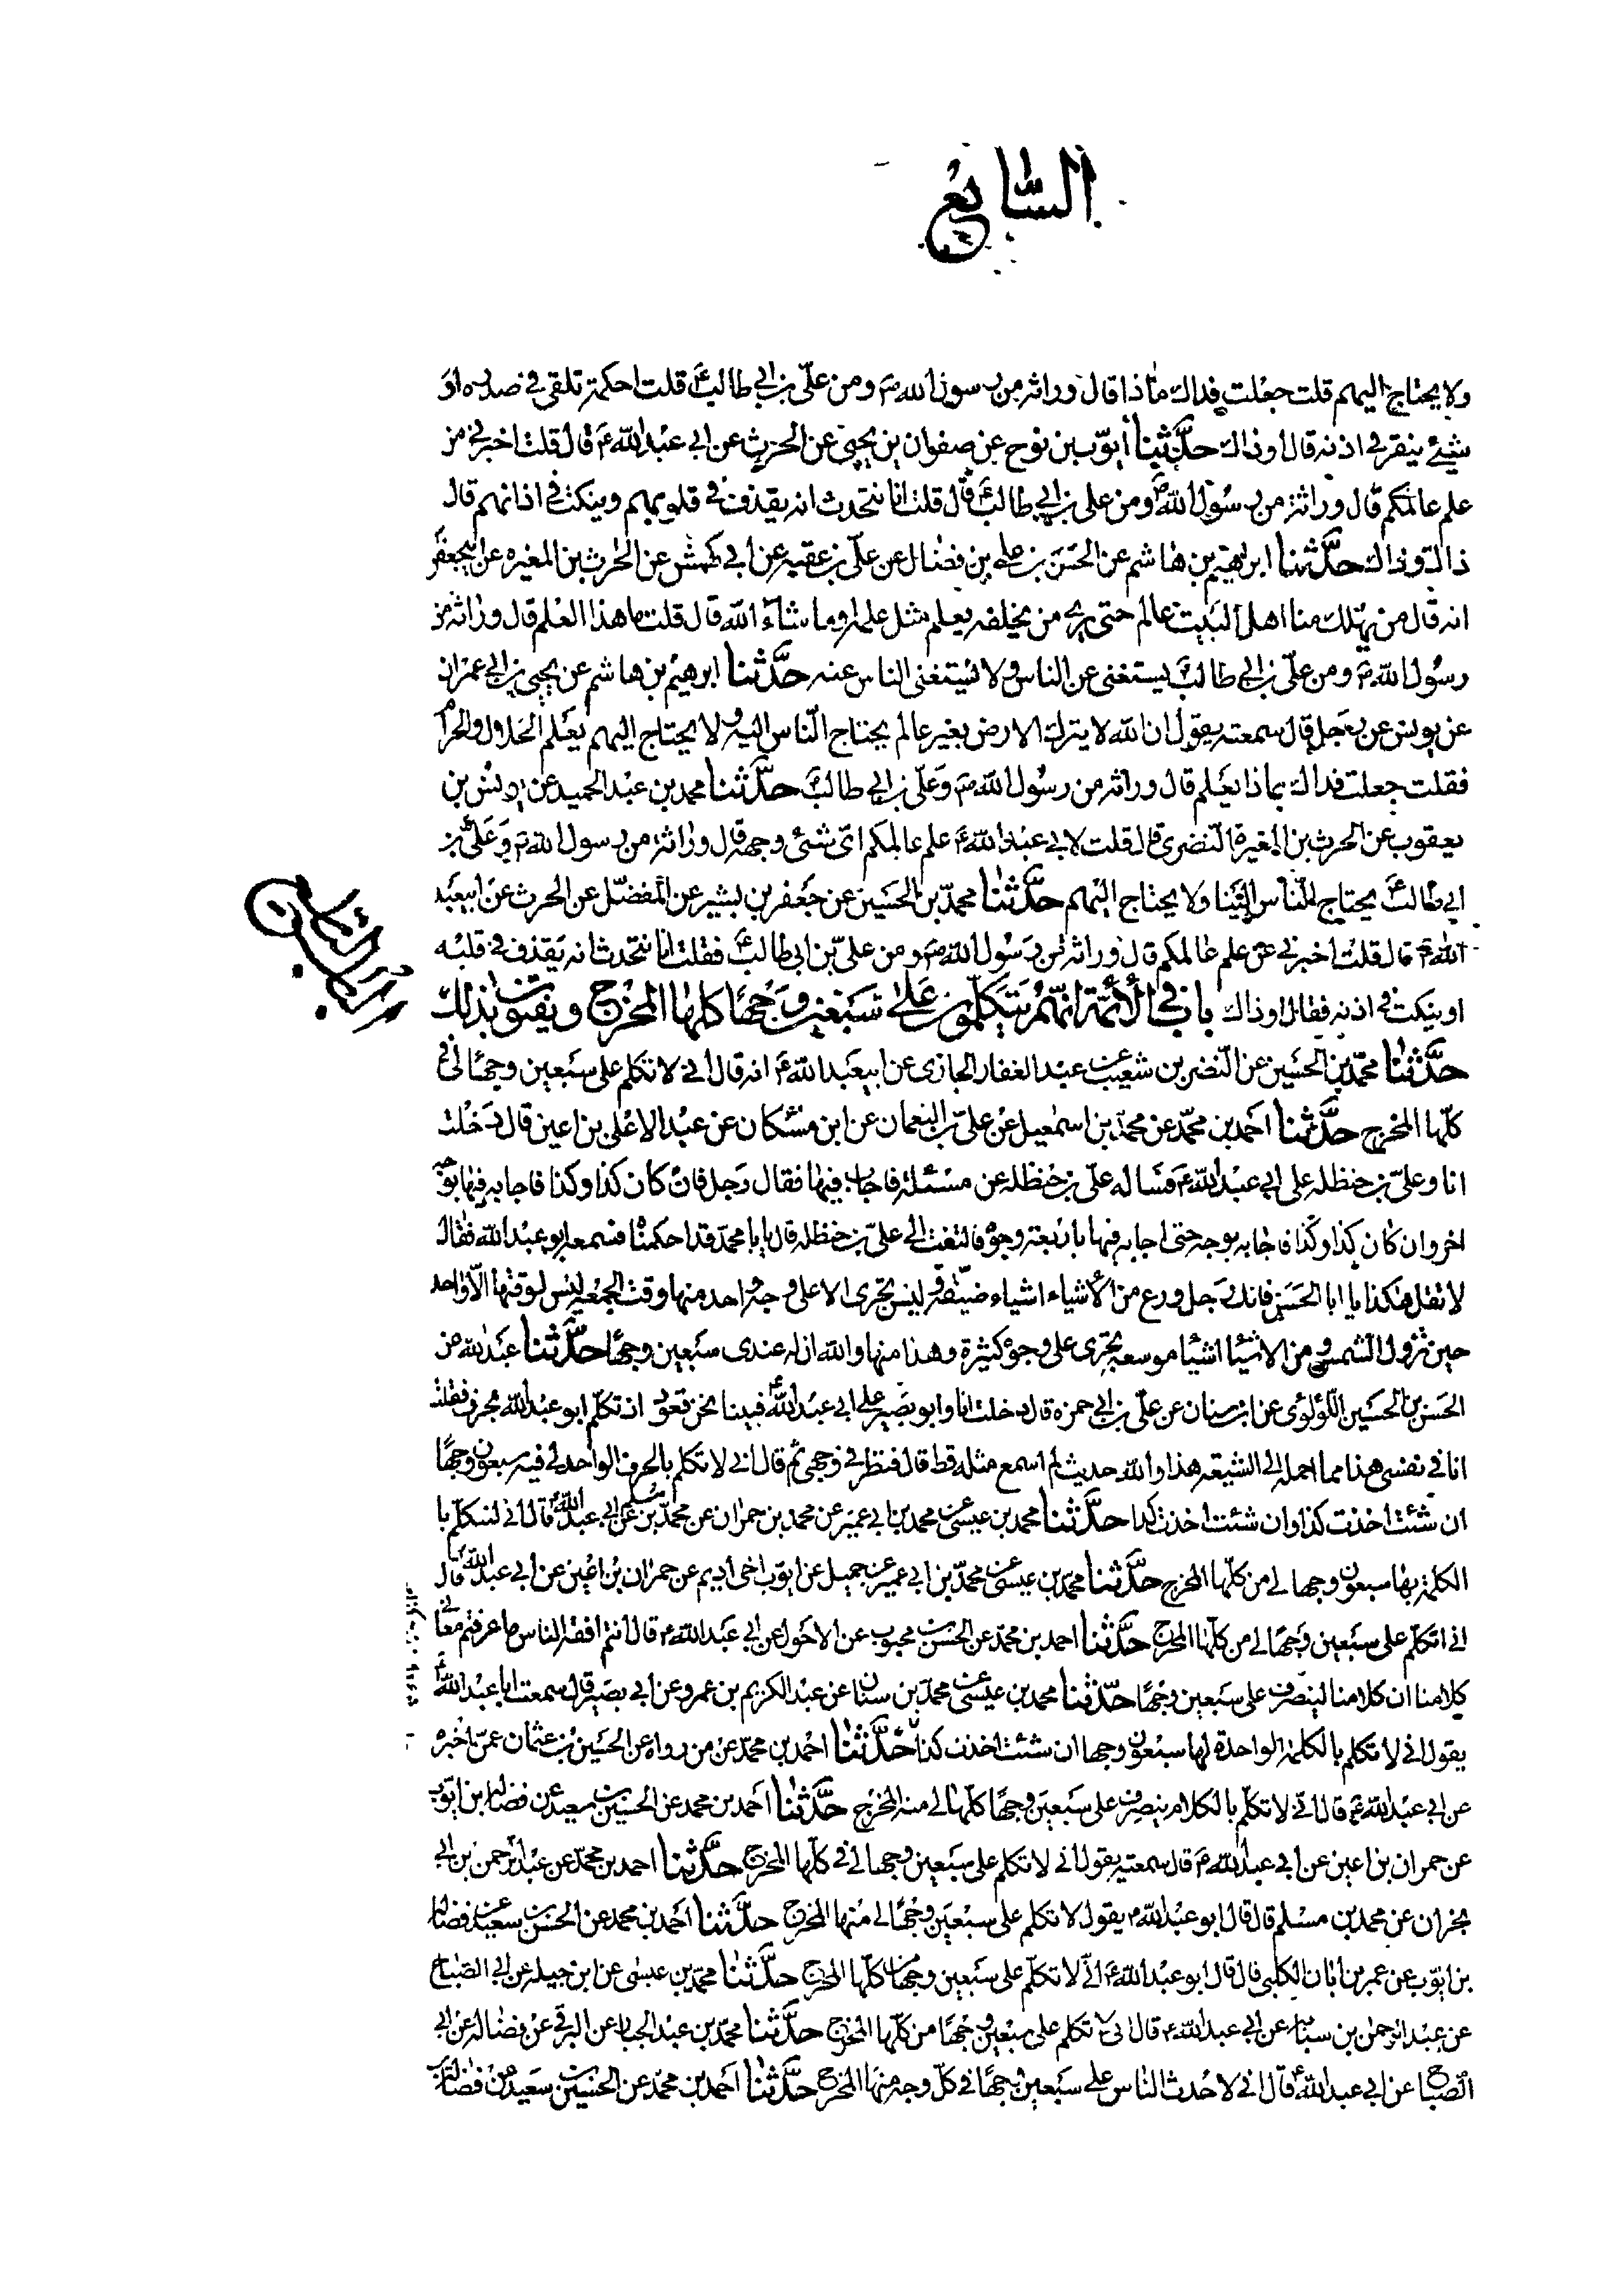 السابع
ولا يحتاج اليهم قلت جعلت فداك ماذا قال وراثه من رسول الله ص ومن علي بن ابي طالب ع قلت احكمة تلقى في صدره او
شيئ ينقر في اذنه قال او ذاك حدثنا ايوب بن نوح عن صفوان بن يحيى عن الحرث عن ابي عبد الله ع قال قلت اخبرني من
علم عالمكم قال وراثة من رسول الله ص ومن علي بن ابي طالب ع قال قلت انا نتحدث انه يقذف في قلوبهم وينكت في اذانهم قال
ذاك وذاك حدثنا ابرهيم بن هاشم عن الحسن بن علي بن فضال عن علي بن عقبه عن ابي كهمش عن الحارث بن المغيره عن ابيجعفر
انه قال من يهلك منا اهل البيت عالم حتى يرى من يخلفه يعلم مثل علمه او ما شاء الله قال قلت ما هذا العلم قال وراثه من
رسول الله ص ومن علي بن ابي طالب ع يستغنى عن الناس ولا يستغنى الناس عنه حدثنا ابرهيم بن هاشم عن يحيى بن ابي عمران
عن يونس عن رجل قال سمعته يقول ان الله لا يترك الارض بغير عالم يحتاج الناس اليه ولا يحتاج اليهم يعلم الحلال والحرام
فقلت جعلت فداك بماذا يعلم قال وراثه من رسول الله ص وعلي بن ابي طالب ع حدثنا محمد بن عبد الحميد عن يونس بن
يعقوب عن الحرث بن المغيرة النضري قال قلت لابي عبد الله ع علم عالمكم اى شئ وجهه قال وراثة من رسول الله ص وعلي بن
ابي طالب ع يحتاج الناس الينا ولا يحتاج اليهم حدثنا محمد بن الحسين عن جعفر بن بشير عن المفضل عن الحرث عن ابيعبد
الله ع قال قلت اخبرني عن علم عالمكم قال وراثة من رسول الله ص ومن علي بن ابي طالب ع فقلت انا نتحدث انه يقذف في قلبه
او ينكت في اذنه فقال او ذاك باب في الأئمة انهم يتكلمون على سبعين وجها كلها المخرج ويفتون بذلك
حدثنا محمد بن الحسين عن النضر بن شعيب عن عبد الغفار الجازى عن ابيعبد الله ع انه قال انى لاتكلم على سبعين وجها لى في
كلها المخرج حدثنا احمد بن محمد عن محمد بن اسمعيل عن علي بن النعمان عن ابن مسكان عن عبد الاعلى بن اعين قال دخلت
انا وعلي بن حنظله على ابي عبد الله ع فساله علي بن حنظله عن مسئلة فاجاب فيها فقال رجل فان كان كذا وكذا فاجابه فيها بوجه
اخر وان كان كذا وكذا فاجابه بوجه حتى اجابه فيها باربعة وجوه فالتفت الى علي بن حنظله قال يا با محمد قد احكمناه فسمعه ابو عبد الله فقال
لا تقل هكذا يا ابا الحسن فانك رجل ورع من الأشياء اشياء ضيقة وليس تجرى الا على وجه واحد منها وقت الجمعه ليس لوقتها الا واحد
حين تزول الشمس ومن الاشيا اشيا موسعه تجرى على وجوه كثيرة وهذا منها والله ان له عندى سبعين وجها حدثنا عبد الله عن
الحسن بن الحسين اللؤلؤى عن ابن سنان عن علي بن ابي حمزه قال دخلت انا وابو بصير على ابي عبد الله ع فبينا نحن قعود اذ تكلم ابو عبد الله ع بحرف فقلت
انا في نفسى هذا مما احمله الى الشيعه هذا والله حديث لم اسمع مثله قط قال فنظر في وجهى ثم قال انى لاتكلم بالحرف الواحد لى فيه سبعون وجها
ان شئت اخذت كذا وان شئت اخذت كذا حدثنا محمد بن عيسى عن محمد بن ابي عمير عن محمد بن حمران عن محمد بن مسلم عن ابي عبد الله ع قال انا لنتكلم با
الكلمة بها سبعون وجها لى من كلها المخرج حدثنا محمد بن عيسى عن محمد بن ابي عمير عن جميل عن ايوب اخى اديم عن حمران بن اعين عن ابي عبد الله ع قال
انى اتكلم على سبعين وجها لى من كلها المخرج حدثنا احمد بن محمد عن الحسن بن محبوب عن الاحول عن ابي عبد الله ع قال انتم افقه الناس ما عرفتم معانى
كلامنا ان كلامنا لينصرف على سبعين وجها حدثنا محمد بن عيسى عن محمد بن سنان عن عبد الكريم بن عمرو عن ابي بصير قال سمعت ابا عبد الله ع
يقول انى لاتكلم بالكلمة الواحدة لها سبعون وجها ان شئت اخذت كذا حدثنا احمد بن محمد عن من رواه عن الحسين بن عثمان عمن اخبره
عن ابي عبد الله ع قال انى لاتكلم بالكلام ينصرف على سبعين وجها كلها لى منه المخرج حدثنا احمد بن محمد عن الحسين بن سعيد عن فضاله بن ايوب
عن حمران بن اعين عن ابي عبد الله ع قال سمعته يقول انى لاتكلم على سبعين وجها لى في كلها المخرج حدثنا احمد بن محمد عن عبد الرحمن بن ابي
نجران عن محمد بن مسلم قال قال ابو عبد الله ع يقول لاتكلم على سبعين وجها لى منها المخرج حدثنا احمد بن محمد عن الحسين بن سعيد عن فضاله
بن ايوب عن عمر بن ابان الكلبى قال قال ابو عبد الله ع انى لاتكلم على سبعين وجها من كلها المخرج حدثنا محمد بن عيسى عن ابن جبله عن ابي الصباح
عن عبد الرحمن بن سيابه عن ابي عبد الله ع قال انى لاتكلم على سبعين وجها من كلها المخرج حدثنا محمد بن عبد الجبار عن البرقى عن فضاله عن ابي
الصباح عن ابي عبد الله ع قال انى لاحدث الناس على سبعين وجها في كل وجه منها المخرج حدثنا احمد بن محمد عن الحسين بن سعيد عن فضاله بن